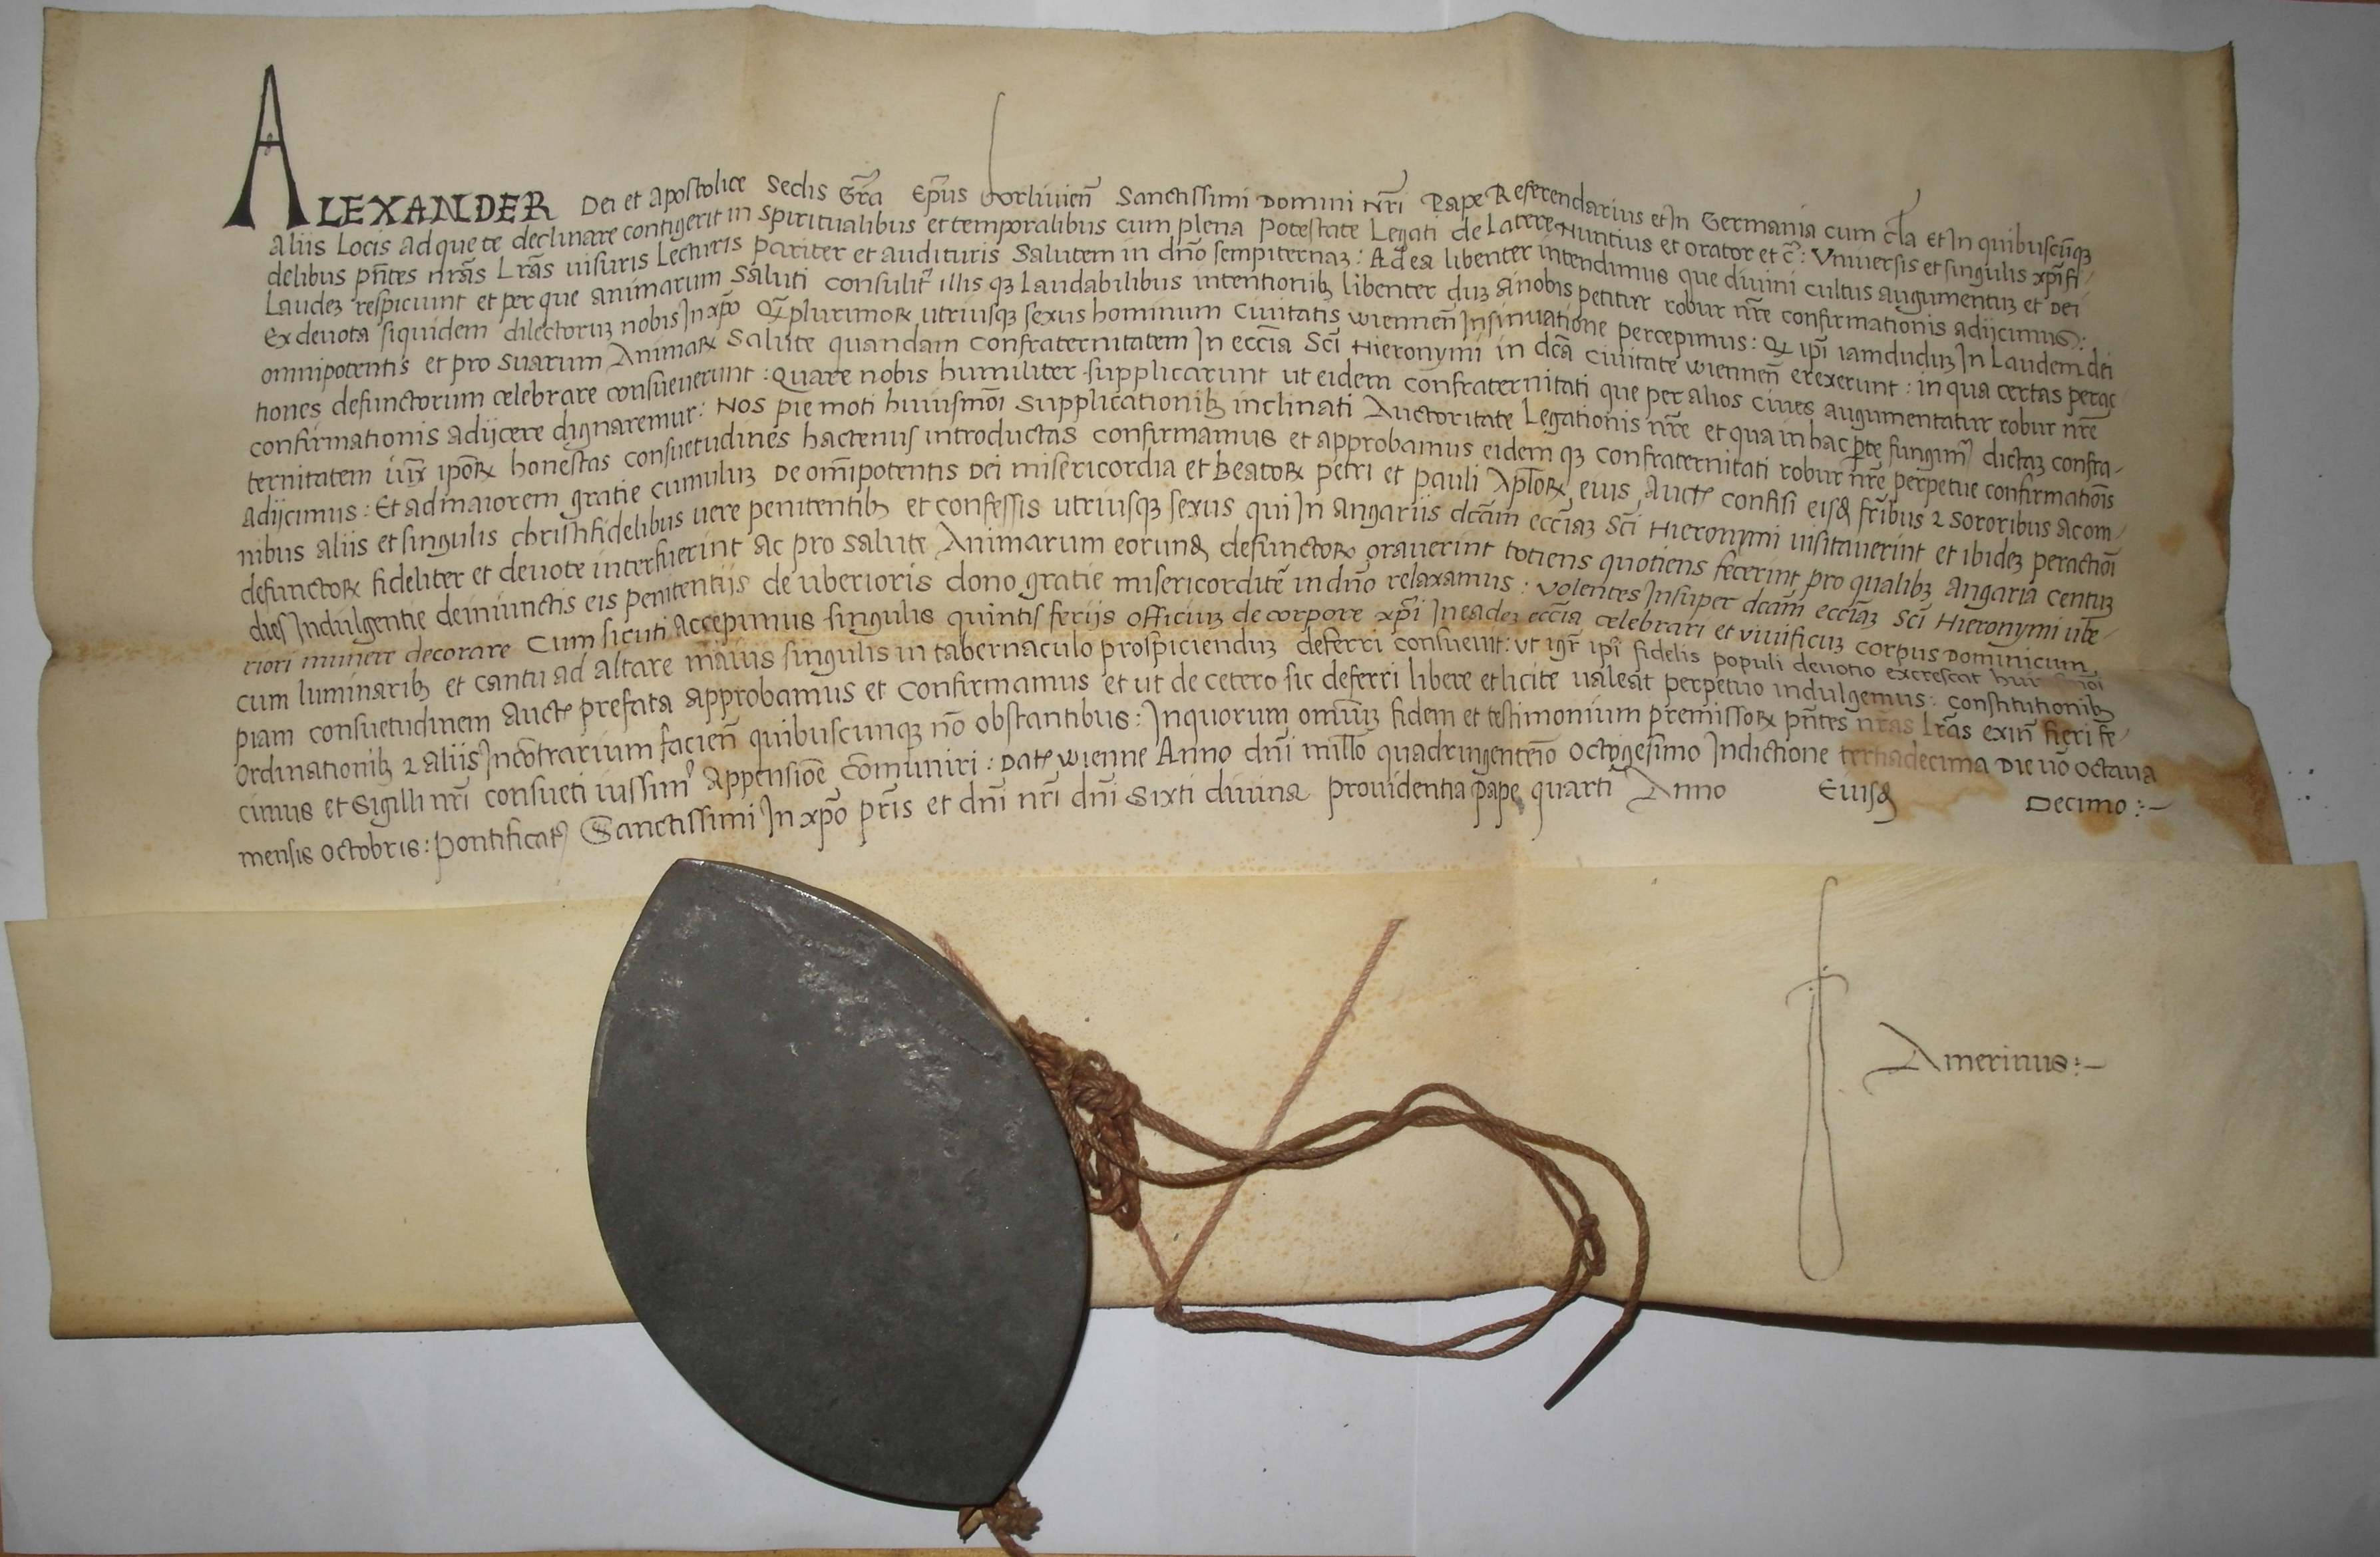 ALEXANDER Dei et apostolice Sedis Gr̃a Ep̃us forliuien̄ Sanctissimi Domini Nr̃i Pape Referendarius et In Germania cum cl̃a Et In quibuscūq̨
aliis Locis ad que te declinare contigerit in Spiritualibus et temporalibus cum plena Potestate Legati de Latere Nuntius et orator et c̃: Vniuersis et singulis xp̃ifi/
delibus pñtes nr̃as Lr̃as uisuris Lecturis pariter et audituris Salutem in dño sempiternaꝫ: Ad ea libenter intendimus que diuini cultus augumentuꝫ et Dei
Laudeꝫ respiciunt et per que animarum Saluti consulit̃ illis qꝫ laudabilibus intentionibꝫ libenter duꝫ a nobis petitur robur nr̃e confirmationis adijcimus:
Ex deuota siquidem dilectoruꝫ nobis In xp̃o qꝫ plurimoꝝ utriusqꝫ sexus hominum Ciuitatis wiennen̄ Insinuatione percepimus: Qꝫ ip̃i iamduduꝫ In Laudem dei
omnipotentis et pro suarum Animaꝝ Salute quandam Confraternitatem In ecc̃ia Sc̃i Hieronymi in dc̃a Ciuitate wiennen̄ erexerunt: in qua certas perac
tiones defunctorum celebrare consueuerunt: Quare nobis humiliter supplicarunt ut eidem confraternitati que per alios Ciues augumentatur robur nr̃e
confirmationis adijcere dignaremur: Nos pie moti huiusmōi Supplicationibꝫ inclinati Auctoritate Legationis nr̃e et qua in hac pṭe fungimꝰ dictaꝫ confra-
ternitatem iux̃ ip̃oꝝ honestas consuetudines hactenus introductas confirmamus et approbamus eidem qꝫ confraternitati robur nr̃e perpetue confirmatiōis
adijcimus: Et ad maiorem gratie cumuluꝫ De om̃ipotentis Dei misericordia et Beatoꝝ petri et pauli Apl̃oꝝ eius Auctꝭ confisi eisđ fr̃ibus ⁊ Sororibus ac om/
nibus aliis et singulis christifidelibus uere penitentibꝫ et confessis utriusqꝫ sexus qui In angariis dc̃am ecc̃iaꝫ Sc̃i Hieronymi uisitauerint et ibideꝫ peractiōi
defunctoꝝ fideliter et deuote interfuerint ac pro salute Animarum eorunđ defunctoꝝ orauerint totiens quotiens fecerint pro qualibꝫ Angaria centuꝫ
dies Indulgentie deiniunctis eis penitentijs de uberioris dono gratie misericorditẽ in dño relaxamus: Volentes Insuper dc̃am ecc̃iaꝫ Sc̃i Hieronymi ube/
riori munere decorare Cum sicuti Accepimus singulis quintis ferijs officiuꝫ de corpore xp̃i In eadeꝫ ecc̃ia celebrari et viuificuꝫ corpus Dominicum
cum luminaribꝫ et cantu ad altare maius singulis in tabernaculo prospicienduꝫ deferri consueuit: ut igr̃ ip̃i fidelis populi deuotio excrescat
piam consuetudinem auctꝭ prefata approbamus et confirmamus et ut de cetero sic deferri libere et licite ualeat perpetuo indulgemus: constitutionibꝫ
Ordinationibꝫ ⁊ aliis Incōtrarium facien̄ quibuscunqꝫ nō obstantibus: Inquorum om̃iuꝫ fidem et testimonium premissoꝝ pñtes nr̃as Lr̃as exin̄ fieri fe/
cimus et Sigilli nr̃i consueti iussimꝰ appensiōe cōmuniri: Datꝭ wienne Anno dñi mill̃o quadringenteō Octogesimo Indictione tertiadecima Die uō Octaua
mensis Octobris: Pontificatꝰ Sanctissimi In xp̃o pr̃is et dñi nr̃i dñi Sixti diuina prouidentia Pape quarti Anno Eiusđ Decimo:-
Amerinus:-